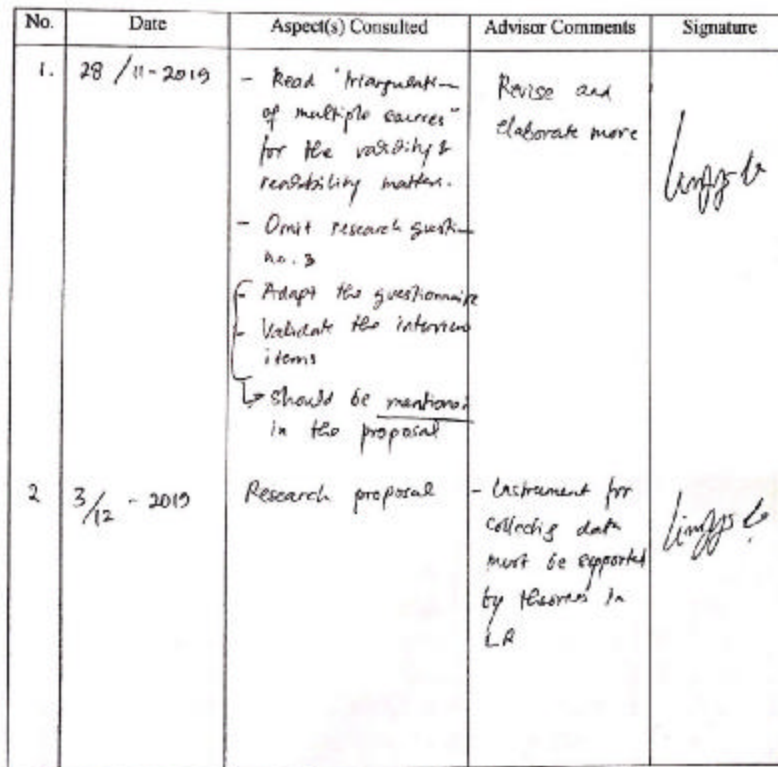 No. Date Aspect(s) Consulted Advisor Comments Signature
1. 28 / 11 - 2019
- Read "triangulation
of multiple sources"
for the validity &
matters.
- Omit research question
no. 3
- Adapt the questionnaire
- Validate the interview
items
↳ should be mentioned
in the proposal
Revise and
elaborate more
2 3/12 - 2019
Research proposal
- Instrument for
collecting data
must be supported
by theories in
LR